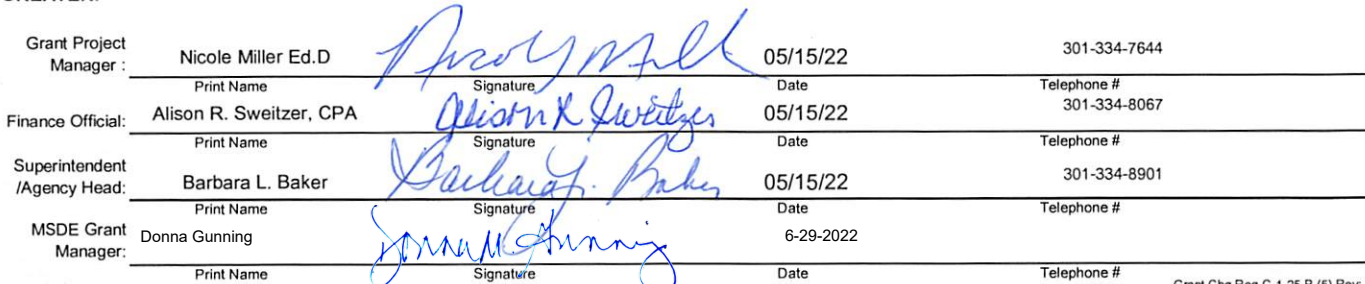 Grant Project Manager : Nicole Miller Ed.D Nicole Mill 05/15/22 301-334-7644
Print Name Signature Date Telephone #
Finance Official: Alison R. Sweitzer, CPA Alison R Sweitzer 05/15/22 301-334-8067
Print Name Signature Date Telephone #
Superintendent /Agency Head: Barbara L. Baker Barbara L. Baker 05/15/22 301-334-8901
Print Name Signature Date Telephone #
MSDE Grant Manager: Donna Gunning Donna M Gunning 6-29-2022
Print Name Signature Date Telephone #